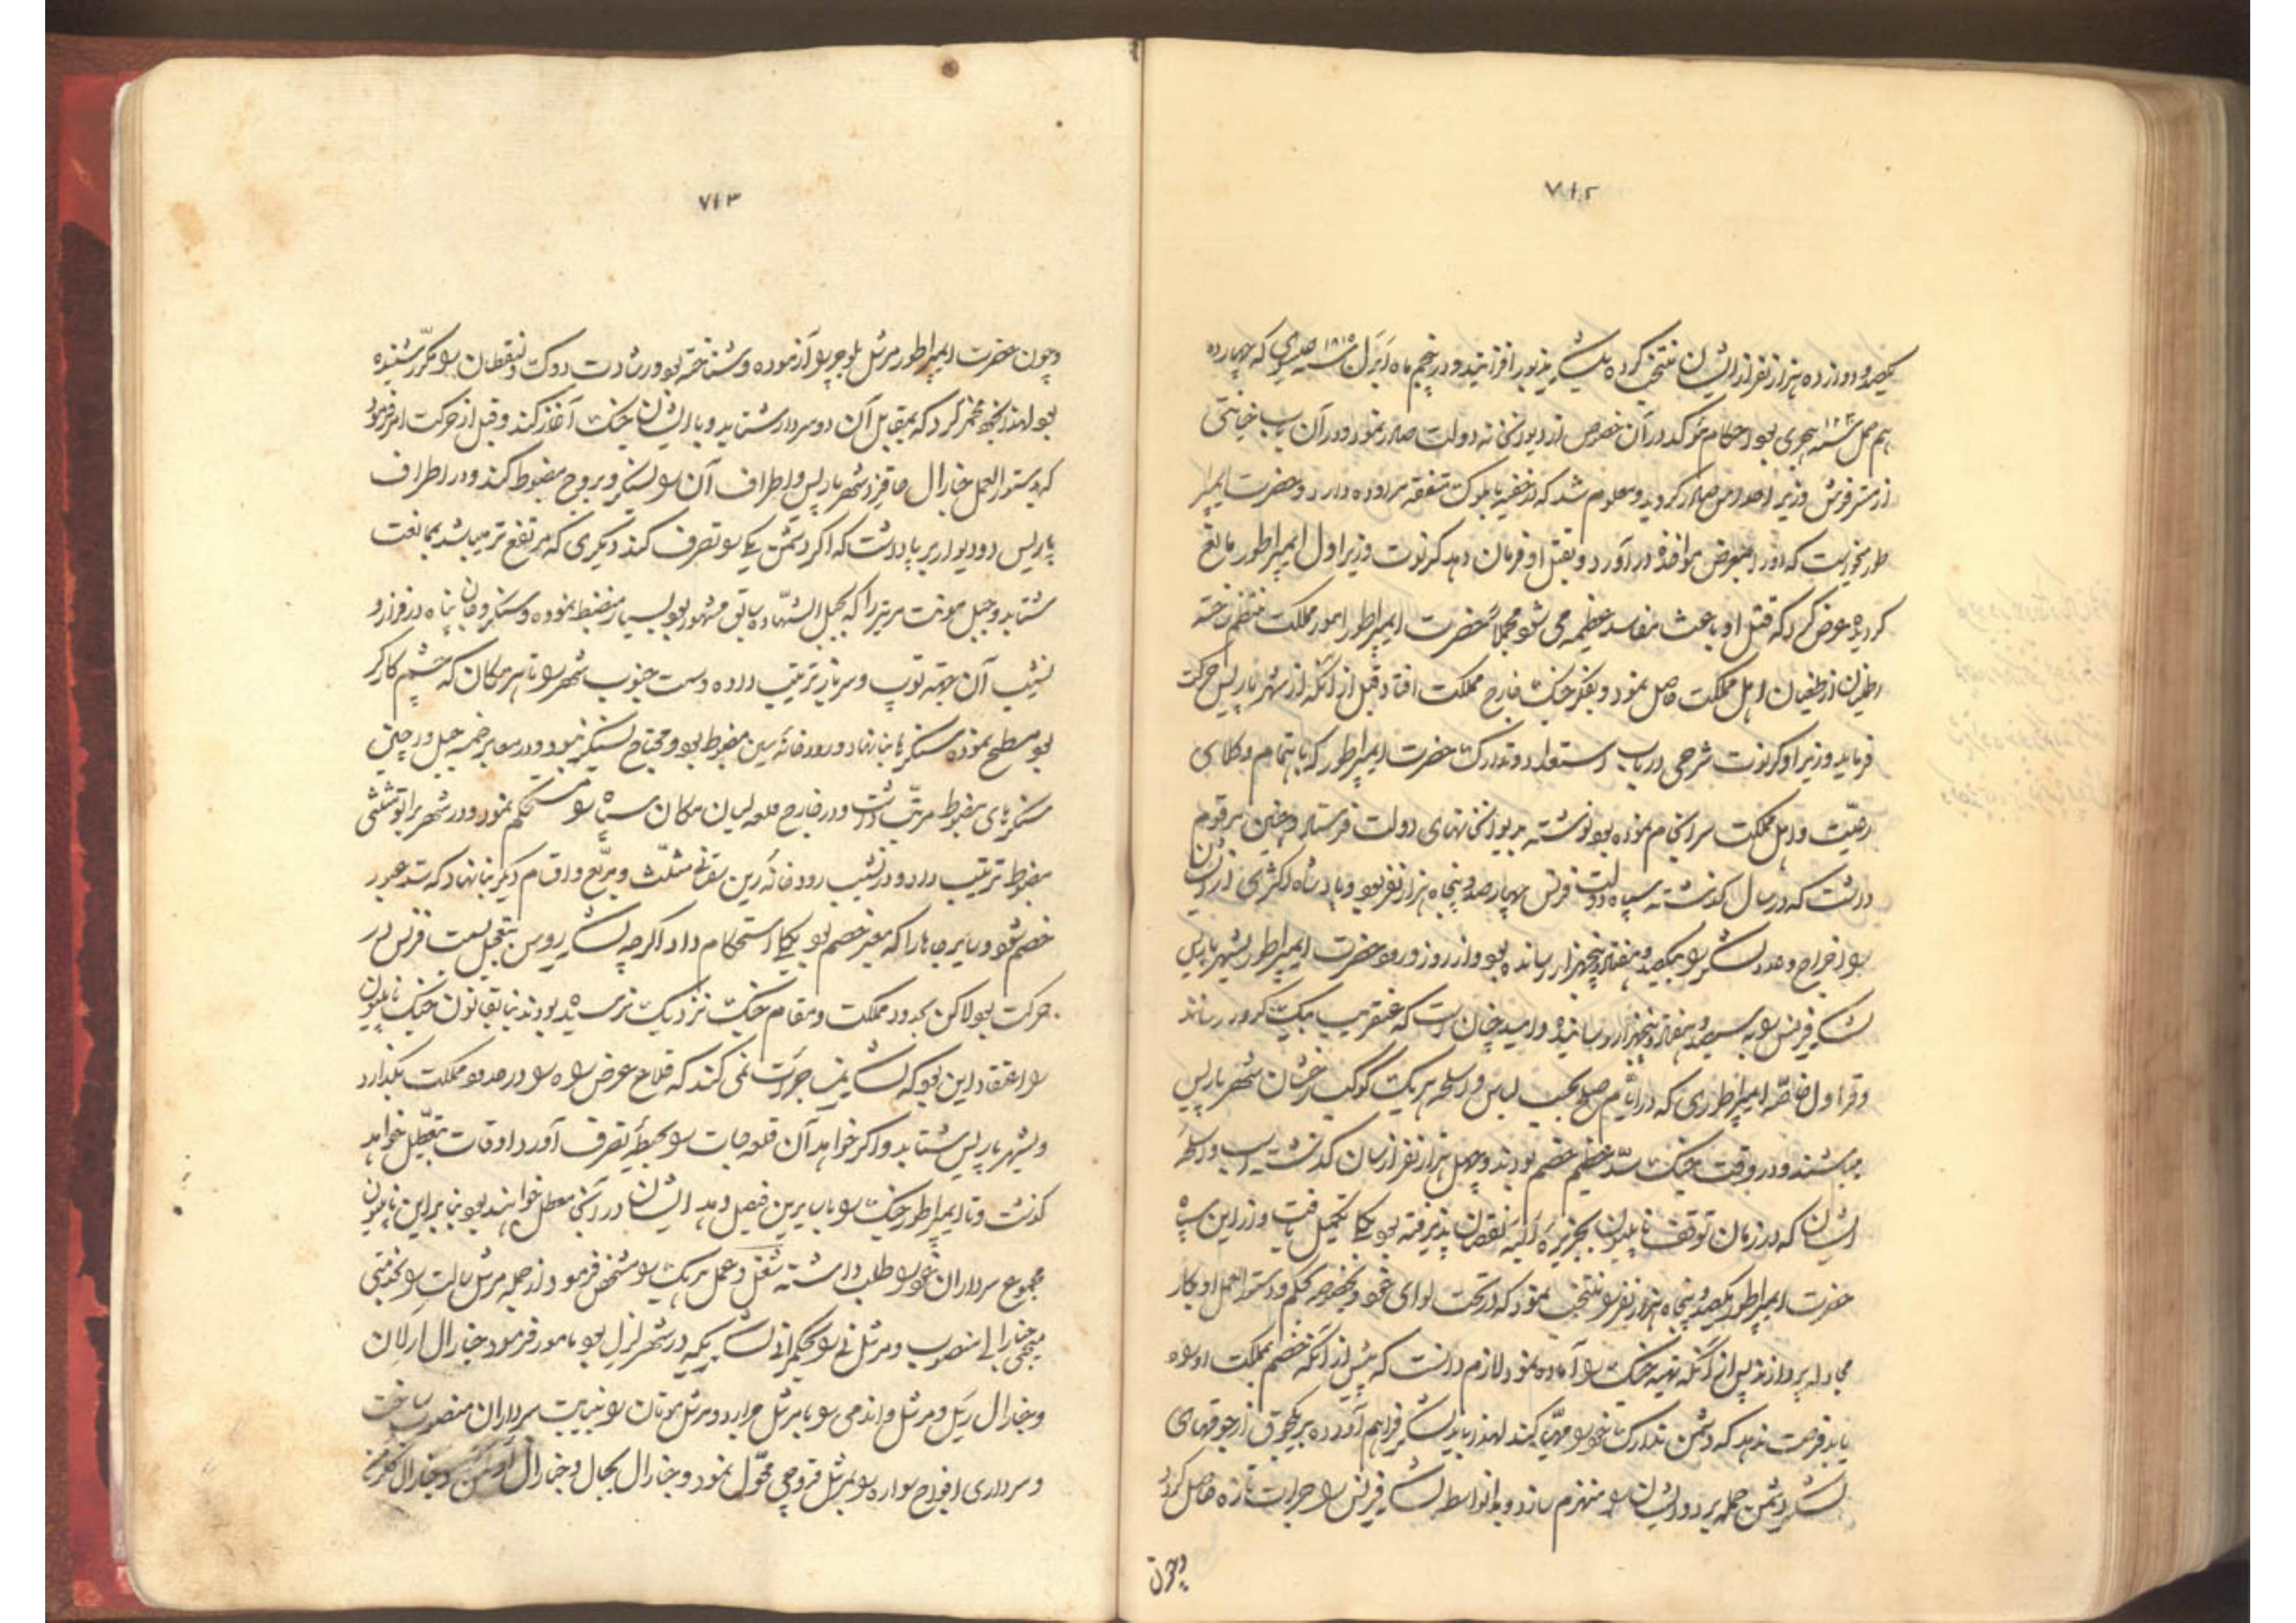 ۷۱۲
یکصد و دوازده هزار نفر از ایشان منتخب کرده بلشکر مزبور افزایند و در پنجم ماه اپرل سنه ۱۸۱۵ عیسوی که چهارده
هم حمل سنه هجری بود احکام مؤکد در آن خصوص از دیوانخانه دولت صادر نمود و در آن باب خیانتی
از مستر فوش وزیر صادر گردید و معلوم شد که در خفیه با ملوک متفقه مراوده دارد و حضرت ایمپرا
طور میخواست که او را بمعرض مؤاخذه در آورد و بقتل او فرمان دهد کرنوت وزیر اول ایمپراطور مانع
گردیده عرض کرد که قتل او باعث مفاسد عظیمه می شود مجملاً حضرت ایمپراطور امور مملکت منتظم ساخته
اطمینان از طغیان اهل مملکت حاصل نمود و بفکر جنک خارج مملکت افتاد قبل از آنکه از شهر پاریس حرکت
فرماید وزیر او کرنوت شرحی در باب استعداد و تدارک حضرت ایمپراطور که باهتمام وکلای
رعیت و اهل مملکت سرانجام نموده بود نوشته بدیوانخانهای دولت فرستاد و چنین مرقوم
داشت که در سال گذشته سپاه دولت فرنس چهارصد و پنجاه هزار نفر بود و پادشاه اکثری از ایشان
را اخراج و عدد لشکر را بیکصد و هفتاد و پنجهزار رسانده بود و از روز ورود حضرت ایمپراطور بشهر پاریس
لشکر فرنس را به سیصد و هفتاد و پنجهزار رسانیده و امید چنان است که عنقریب بیک کرور رساند
و قراول خاصه ایمپراطوری که در ایام صلح بحسب لباس و اسلحه هریک کوکب رخشان شهر پاریس
میباشند و در وقت جنک سد عظیم خصم بودند و چهل هزار نفر از سان گذشت اسباب و اسلحه
ایشان که در زمان توقف ناپلیون بجزیره البه نقصان پذیرفته بود بکلی تکمیل یافت و از این سپاه
حضرت ایمپراطور یکصد و پنجاه هزار نفر را منتخب نمود که در تحت لوای خود و بخصوصه بحکم و دستورالعمل او بکار
مجادله پردازند پس از آنکه تهیه جنک را آماده نمود لازم دانست که پیش از آنکه خصم بمملکت او
باید فرصت ندهد که دشمن تدارک خود را مهیا کند لهذا باید لشکر فراهم آورده بر یکجوق از جوقهای
لشکر دشمن حمله برد و ایشان را منهزم سازد و بدانواسطه لشکر فرنس را جرات تازه حاصل گردد
و چون
۷۱۳
و چون حضرت ایمپراطور مرشل بلوچر را آزموده و شناخته بود و رشادت دوک ولنقطان را مکرر شنیده
بود لهذا بخود مخمر کرد که بمقابل آن دو سردار شتابد و با ایشان جنک آغاز کند و قبل از حرکت امر فرمود
که بدستورالعمل جنارال حاقزو شهر پاریس و اطراف آن را بسنکر و بروج مضبوط کند و در اطراف
پاریس دو دیوار بر پا داشت که اگر دشمن یکی را تصرف کند دیگری که مرتفع تر میباشد بممانعت
شتابد و جبل مونت مرتر را که بجبل الشهاده سابق مشهور بود بسیار منضبط نموده و سنکر و جان پناه در فراز و
نشیب آن جهة توپ و سرباز ترتیب داده و سمت جنوب شهر را تا هر مکان که چشم کار کرد
بود مسطح نموده سنکرها بنا نهاد و رودخانه سین مضبوط بود و محتاج بسنکر نبود و در معابر ضمه جبل و در چلن
سنکرهای مضبوط مرتب داشت و در خارج قلعه لیان مکان سپاه را مستحکم نمود و در شهر برابر
مضبوط ترتیب داد و در نشیب رودخانه رین بقاع مثلث و مربع و اقسام دیگر بنا نهاد که سد عبور
خصم شود و سایر جاها را که معبر خصم بود بکلی استحکام داد اگرچه لشکر روس بتعجیل بسمت فرنس در
حرکت بود لاکن بحدود مملکت و مقام جنک نزدیک نرسیده بودند بنا بقانون جنک ناپلیون
را اعتقاد این بود که لشکر جرأت نمی کنند که قلاع عرض راه را در حدود مملکت بگذارد
و بشهر پاریس شتابد و اگر خواهد آن قلعه جات را بحیطه تصرف آورد اوقات بتعطیل خواهد
گذشت و تا ایمپراطور جنک را با سایرین فیصل دهد ایشان در آنجا معطل خواهند بود بنابر این ناپلیون
مجموع سرداران خود را طلب داشته شغل و عمل هر یک را مشخص فرمود از جمله مرشل سالت را بخدمتی
میجر جنارالی منصوب و مرشل نی را بحکمرانی لشکریکه در شهر لزل بود مامور فرمود جنارال ارلان
و جنارال ریل و مرشل واندمی را با مرشل جرارد و مرشل موتان را بنیابت سرداران منصوب ساخت
و سرداری افواج سواره را بمرشل قروچی محول نمود و جنارال بجال و جنارال و جنارال